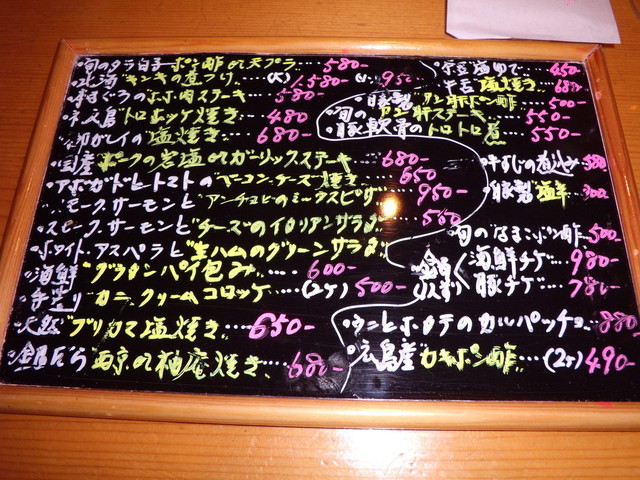 旬のタラ白子ポン酢or天プラ…580-
北海キンキの煮つけ…(大)1,580-(小)950
本まぐろのホホ肉ステーキ…580-
トロホッケ焼き…480
塩焼き…680-
国産ポークの岩塩orガーリックステーキ…680-
アボガドとトマトのベーコンチーズ焼き…650
スモークサーモンとアンチョビのミックスピザ…950-
スモークサーモンとチーズのイタリアンサラダ…560
ホワイトアスパラと生ハムのグリーンサラダ
海鮮グラタンパイ包み…600-
手造りカニクリームコロッケ…(2ヶ)500-
天然ブリカマ塩焼き…650-
銀だら西京or柚庵焼き…680-
塩ゆで…450
牛舌塩焼き…680
自家製アン肝ポン酢…500-
旬のアン肝ステーキ…550
豚軟骨のトロトロ煮…550-
牛すじの煮込み…580
自家製塩辛…300
旬のなまこポン酢…500-
海鮮チゲ…980-
豚チゲ…780-
ウニとホタテのカルパッチョ…880
広島産カキポン酢…(2ヶ)490-